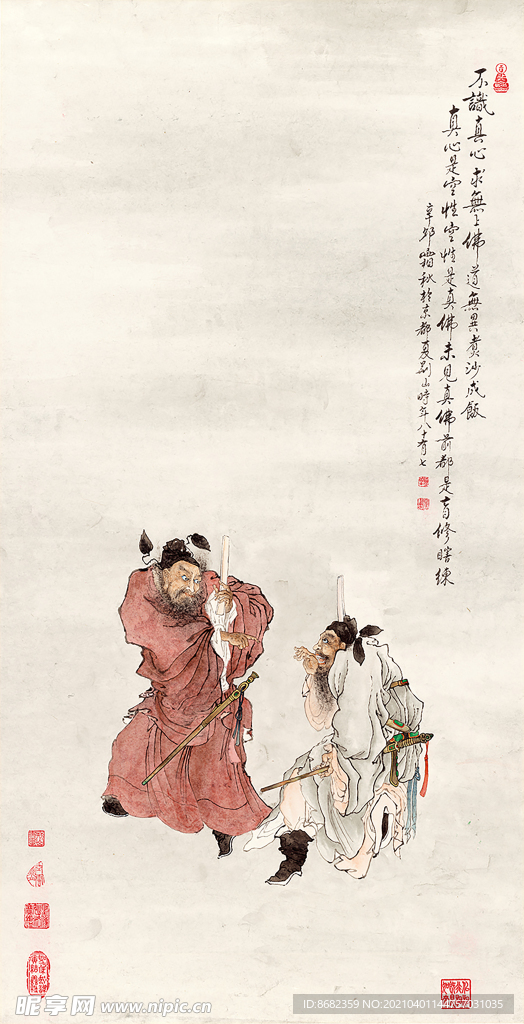 不識真心求無上佛道無異煑沙成飯
真心是空性空性是真佛未見真佛前都是盲修瞎練
辛卯霜秋於京都夏荊山時年八十有七
昵享网 www.nipic.cn
ID:8682359 NO:20210401144757031035